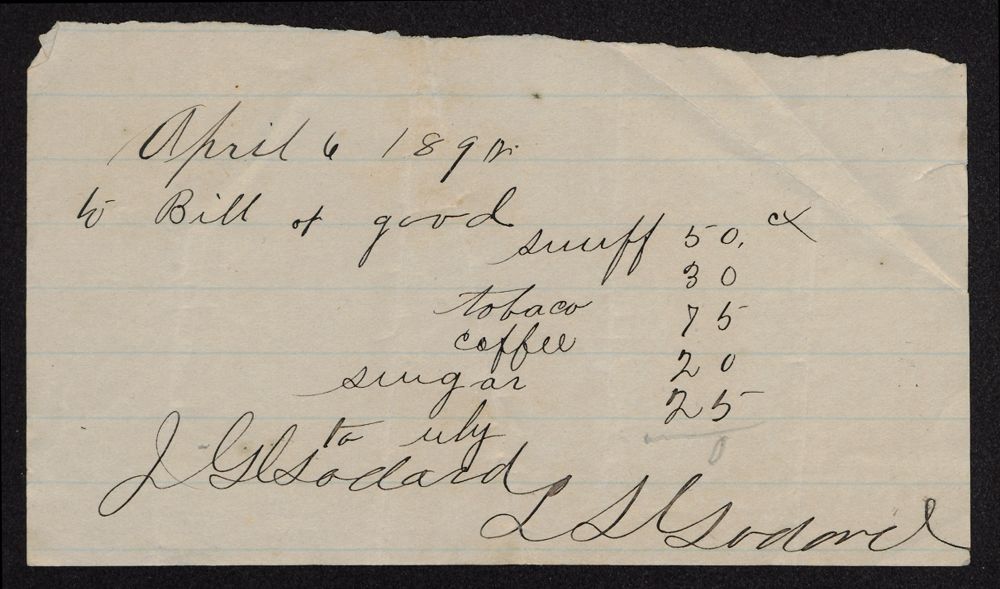 April 6 189
to Bill of good
snuff 50. ct
30
tobaco 75
coffee 20
sugar 25
to
0
J G Godard
L S Godard